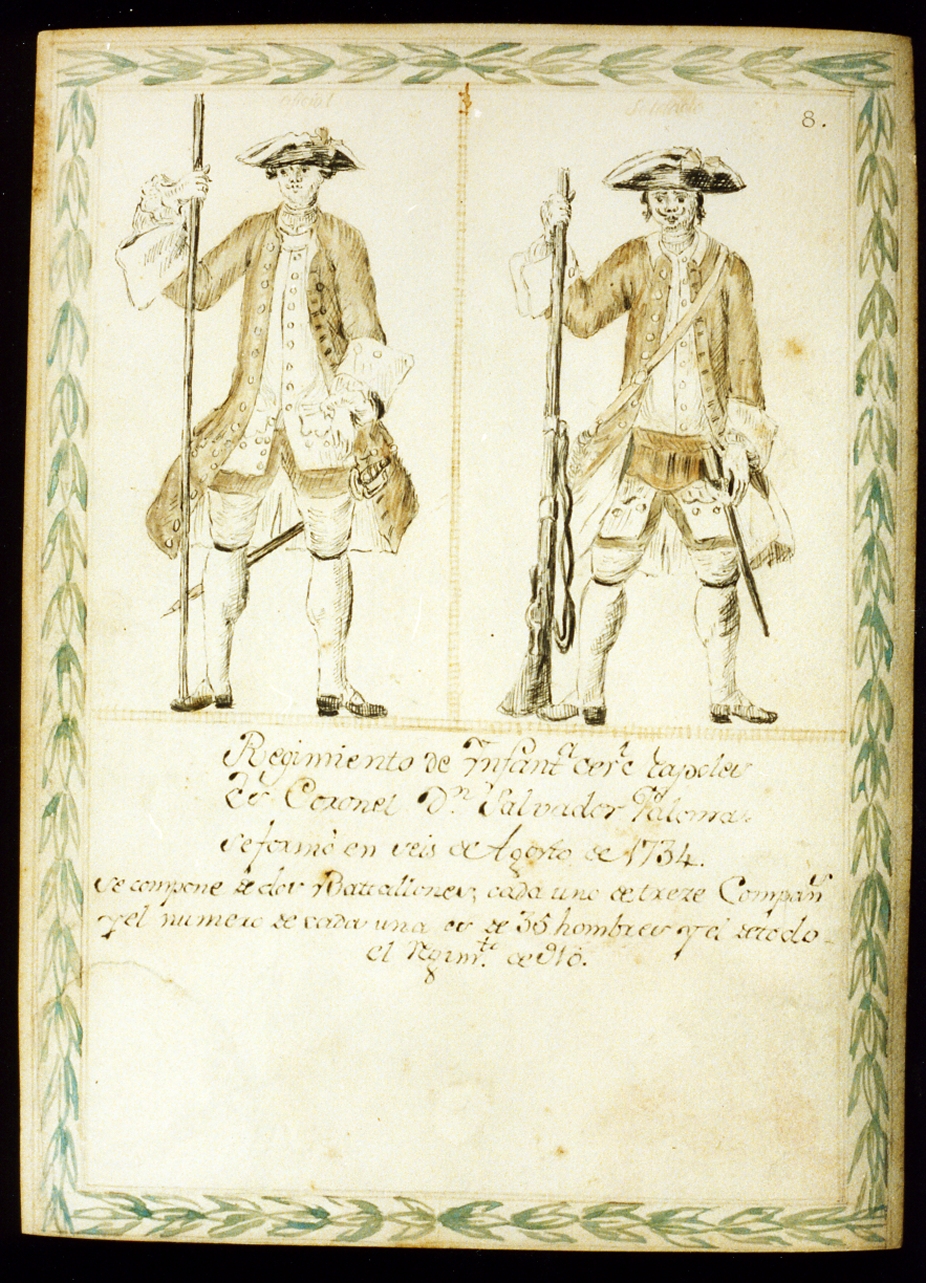 Oficial
Soldado
8.
Regimiento de Infant.ª
Es Coronel D.n Salvador
se formò en seis de Agosto de 1734.
se compone de dos Battallones, cada uno de treze Compañ.s
y el numero de cada una es de 35 hombres y el de todo
el Regim.to de 910.